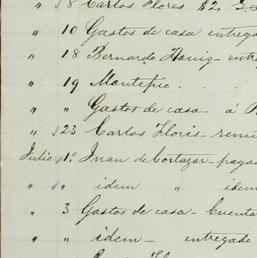 " 8 Carlos Flores $2,
" 10 Gastos de casa entreg
" 18 Bernardo Hönig - entr
" 19 Montepio . . .
" " Gastos de casa - á
" 23 Carlos Floris - remi
Julio 1º Juan de Cortazar - paga
" " idem " idem
" 3 Gastos de casa - Cuenta
" " idem - entregado